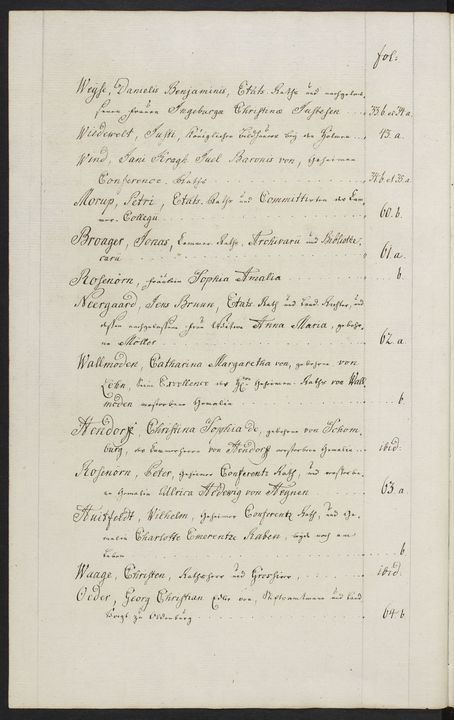 fol:
Weyse, Danielis Benjaminis, Etats-Raths und nachgelas-
senen Frauen Ingeburgæ Christinæ Justesen . . . 33.b. et 34.a.
Wiedewelt, Justi, Königlichen Bildhauers bey der 13. a.
Wind, Jani Kragh Juel Baronis von, Geheimen
Conference-Raths . . . 34.b. et 35.a.
Morup, Petri, Etats-Raths und Committirten des Com-
merce-Collegii . . . 60. b.
Broager, Jonas, Cammer-Raths, Archivarii und Bibliothe-
carii . . . 61 a.
Rosenörn, Fräulein Sophia Amalia . . . b.
Neergaard, Jens Bruun, Etats-Rath und Land-Richter, und
dessen nachgelassene Frau Wittwe Anna Maria, gebohr-
ne Möller . . . 62. a.
Wallmoden, Catharina Margaretha von, gebohrne von
Lehn, Seiner Excellence des Geheimen-Raths von Wall-
moden verstorbene Gemalin . . . b.
Hendorff, Christina Sophia de, gebohrne von Schom-
burg, des Cammerherrn von Hendorff verstorbene Gemalin . . . ibid.
Rosenörn, Peter, Geheimer Conferentz Rath, und verstorbe-
ne Gemalin Ulrica Hedewig von Heynen . . . 63. a.
Huitfeldt, Vilhelm, Geheimer Conferentz Rath, und Ge-
malin Charlotte Emerentze Raben, noch am
Leben . . . b.
Waage, Christen, Rathsherr und Grossirer, . . . ibid.
Oeder, Georg Christian Edler von, Stiftsamtmann und Land-
Voigt zu Oldenburg . . . 64. b.